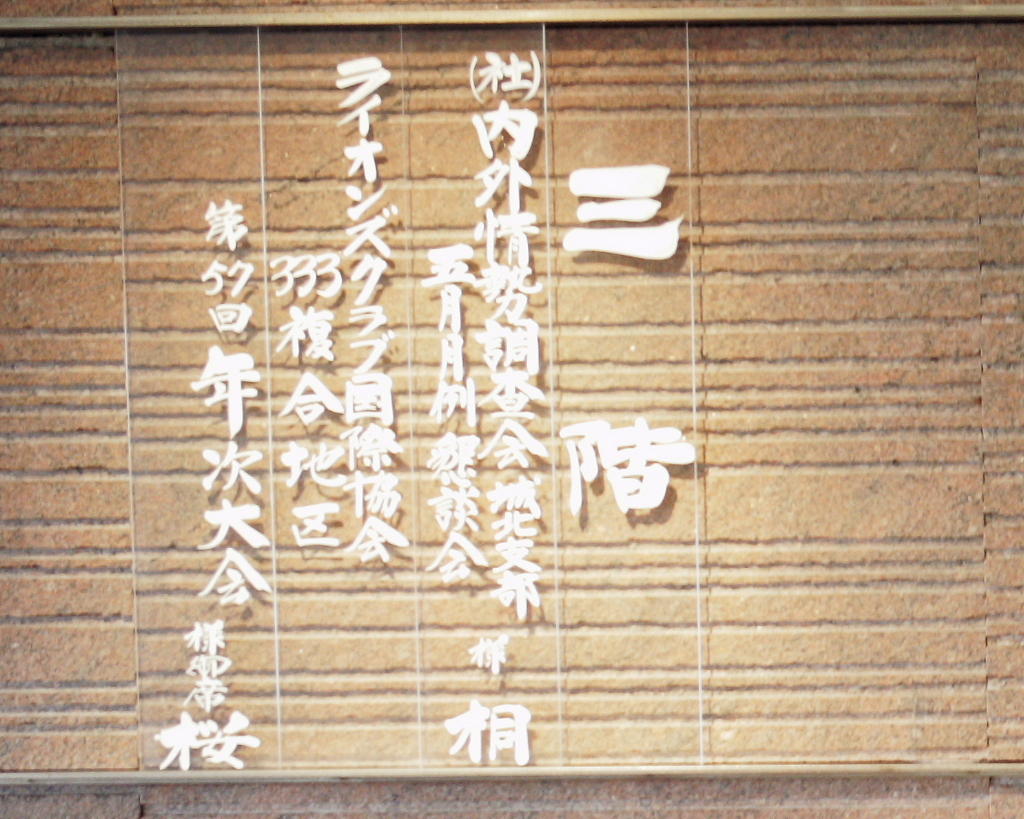 三階
(社)内外情勢調査会城北支部
五月月例懇談会
様
桐
ライオンズクラブ国際協会
333複合地区
第57回年次大会
様御席
桜